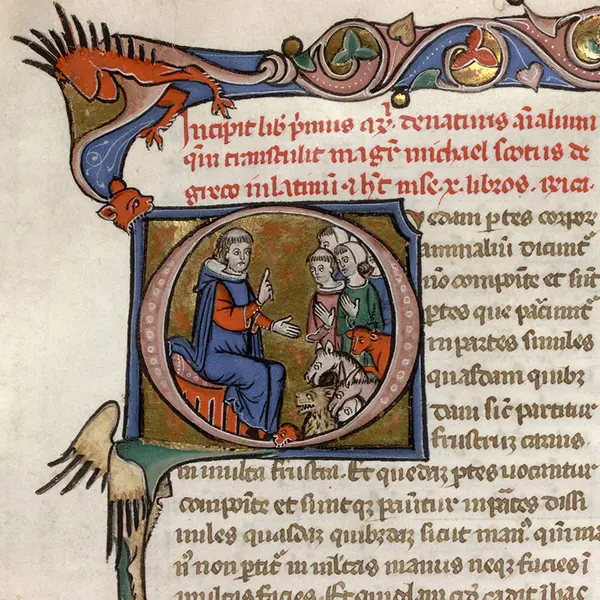 Incipit lib' p'mus ar' de naturis aialium
que' transtulit mag' michael scotus de
greco in latinu' ⁊ h't in se .x. libros.
Quedam p'tes corpor'
animaliu' dicunt'
no' compo'ite et sunt
p'tes que partiunt'
in partes similes
quasdam quibz
dam sic' partitur
frustru' carnis
in multa frustra. Et quedaz p'tes uocantur
compo'ite et sunt partiuntur in partes dissi
miles quasdaz quibzdaz sicut man'
n' non partit' in multas manus neqz facies i'
multas facies. Et i' hac